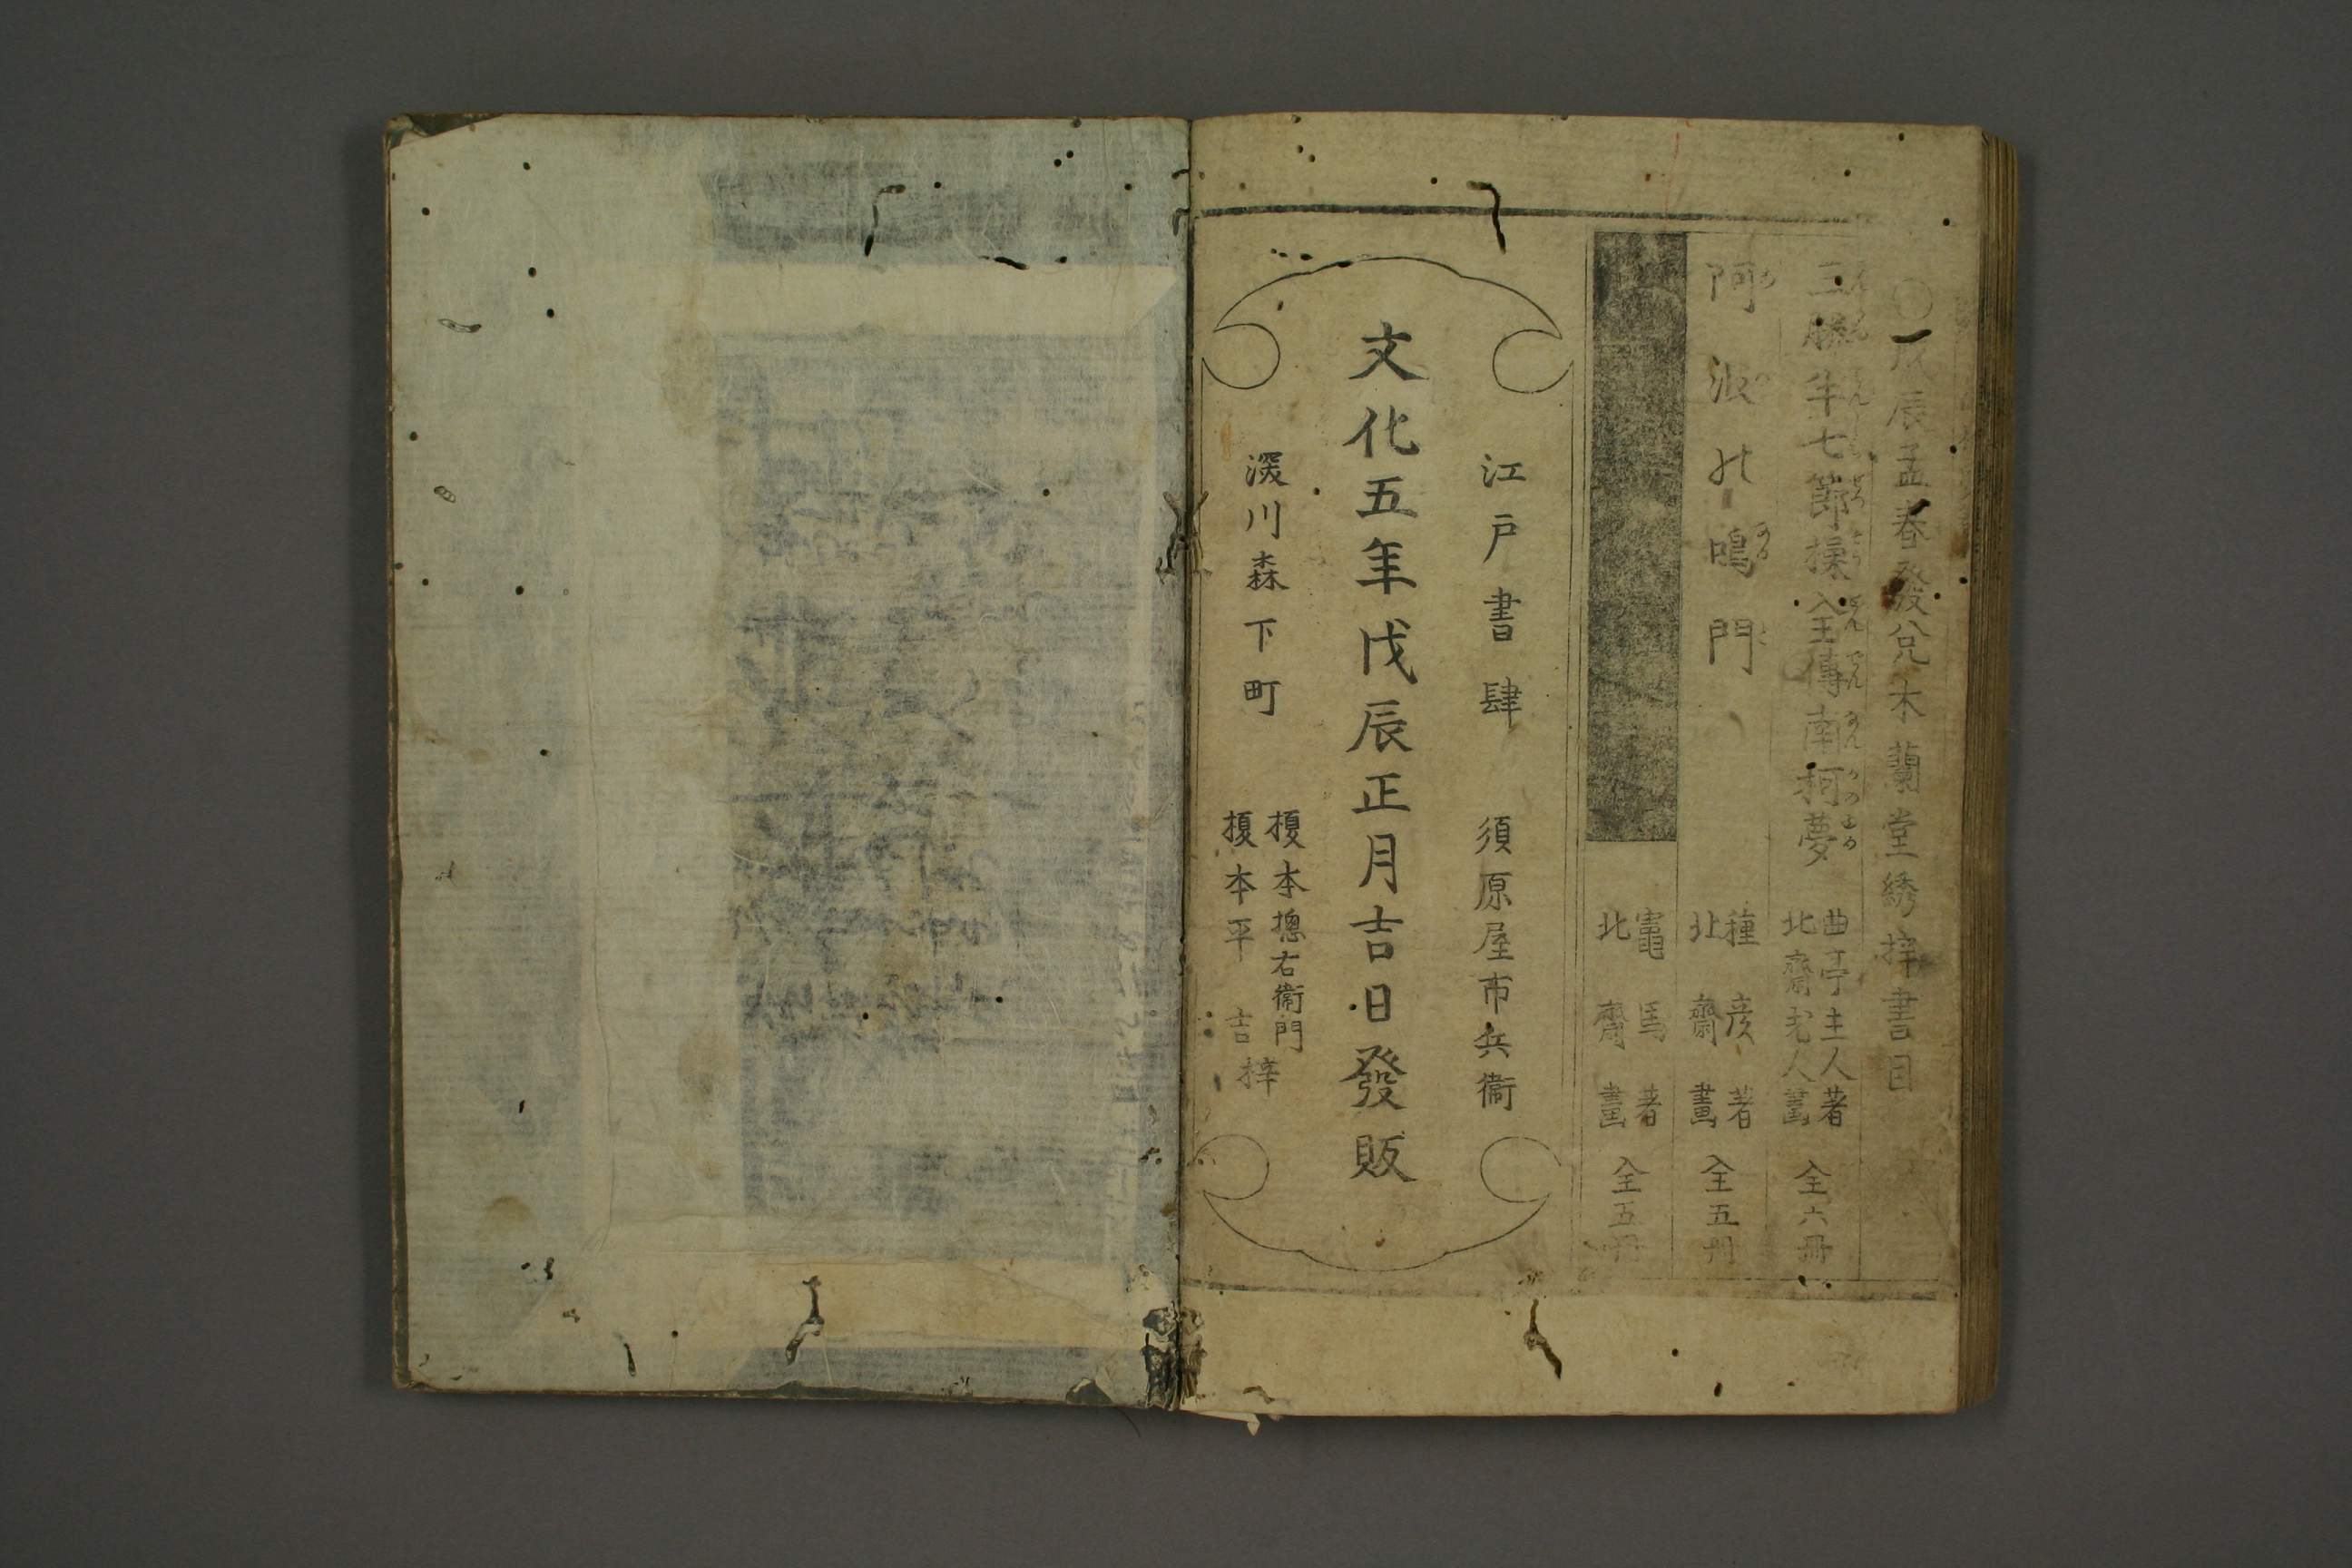 〇戊辰孟春發兌木蘭堂綉梓書目
三勝半七節操入王傳南柯夢 曲亭主人著 北齋老人畫 全六冊
阿波の鳴門 種彦著 北齋畫 全五冊
竃馬著 北齋畫 全五冊
江戸書肆 須原屋市兵衞
文化五年戊辰正月吉日發販
深川森下町 榎本摠右衞門
榎本平吉梓